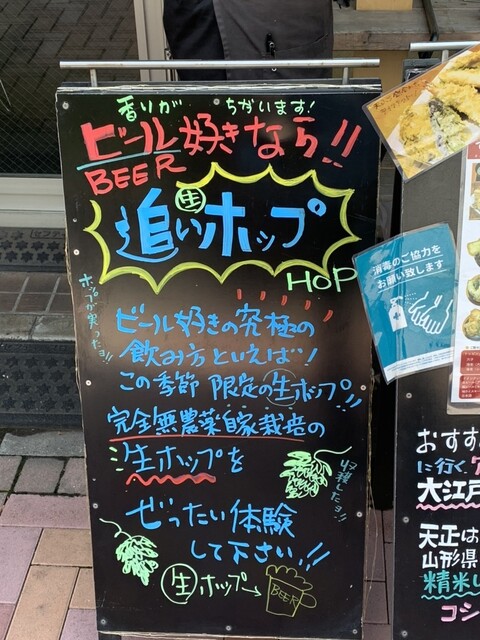 香りが ちがいます!
ビール好きなら!!
BEER
生
追いホップ
HOP
ホップが実ったョ!!
ビール好きの究極の
飲み方といえば!
この季節 限定の生ホップ!!
完全無農薬自家栽培の
生ホップを
収穫したョ!!
ぜったい体験
して下さい!!
生ホップ→
BEER
消毒のご協力を
お願い致します
おすす
に行く
大江戸
天正は
山形県
精米し
コシ